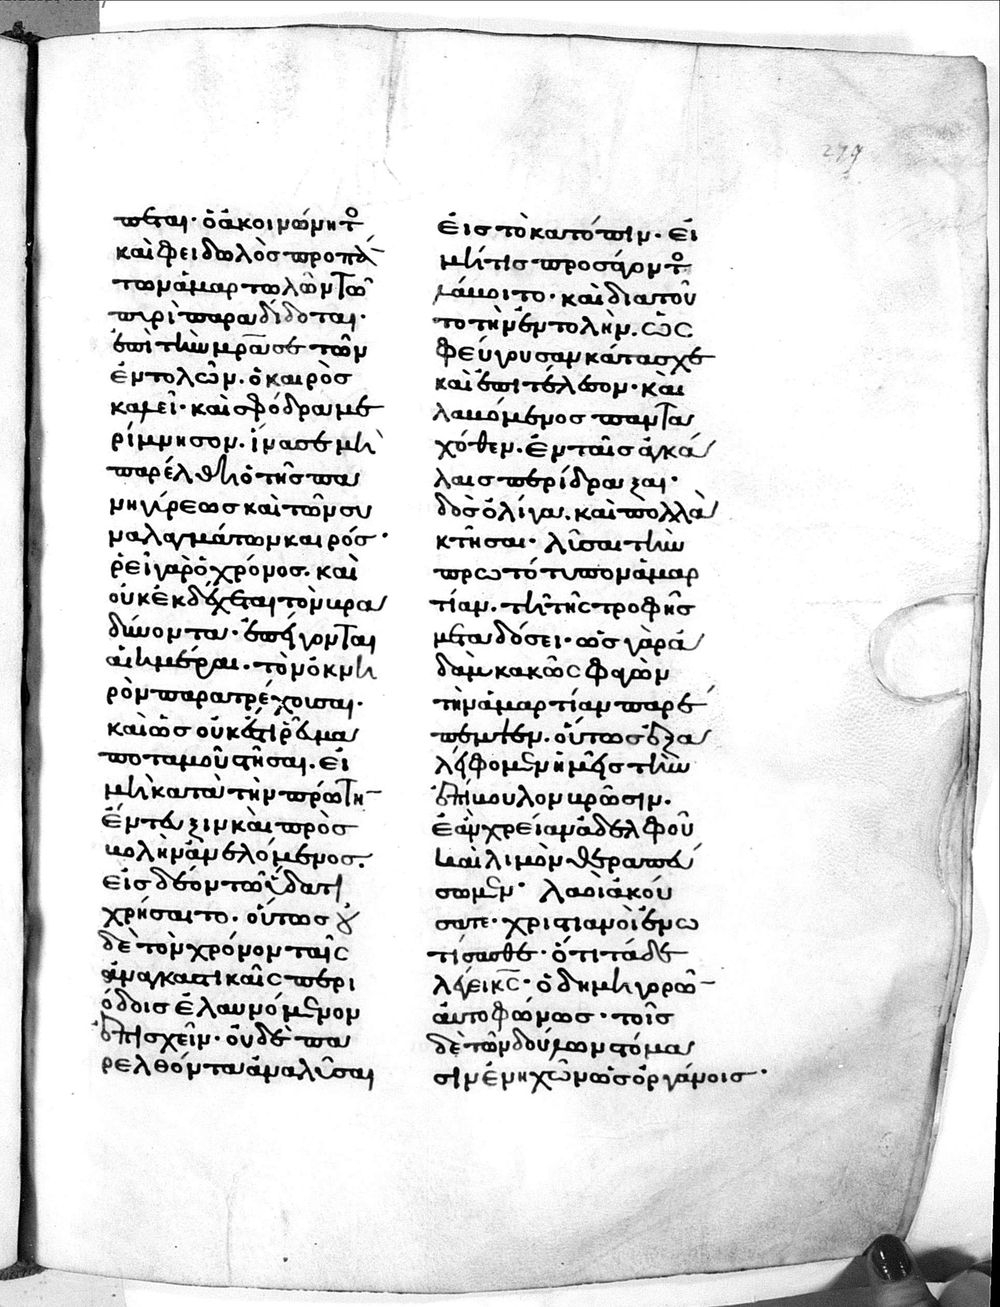 πεται· ὁ ἀκοινώνητ
καὶ φειδωλὸς προπά
των ἁμαρτωλῶν τῶ
πυρὶ παραδίδοται·
ἐπὶ τὴν μρᾶν σε τῶν
ἐντολῶν. ὁ καιρὸς
καλεῖ· καὶ σφόδρα με
ρίμνησον. ἵνα σε μὴ
παρέλθη ὁ τῆς πα
νηγύρεως καὶ τῶν συ
ναλαγμάτων καιρός·
ῥεῖ γὰρ ὁ χρόνος. καὶ
οὐκ ἐκδέχεται τὸν βρα
δύνοντα· ἐπείγονται
αἱ ἡμέραι. τὸν ὀκνη
ρὸν παρατρέχουσαι.
καὶ ὡς οὐκ ἔστι ῥεῦμα
ποταμοῦ στῆσαι. εἰ
μὴ κατὰ τὴν πρώτη
ἔντευξιν καὶ προσ
βολὴν ἀνελόμενος.
εἰς δέον τῶ ὕδατι
χρήσαιτο. οὕτως οὐ
δὲ τὸν χρόνον ταῖς
ἀναγκαστικαῖς περι
όδοις ἐλαυνόμενον
ἐπισχεῖν. οὐδὲ πα
ρελθόντα ἀναλῦσαι
εἰς τὸ κατόπιν. εἰ
μή τις προσάγοντ
λάβοιτο. καὶ διατοῦ
το τὴν ἐντολὴν. ὡς
φεύγουσαν κάτασχε
καὶ ἐπιτέλεσον. καὶ
λαβόμενος παντα
χόθεν. ἐν ταῖς ἀγκά
λαις περίδραξαι·
δὸς ὀλίγα. καὶ πολλὰ
κτῆσαι· λῦσαι τὴν
πρωτότυπον ἁμαρ
τίαν. τῆ τῆς τροφῆς
μεταδόσει· ὡς γὰρ ἀ
δὰμ κακῶς φαγὼν
τὴν ἁμαρτίαν παρέ
πεμψεν. οὕτως ἐξα
λείφομεν ἡμεῖς τὴν
ἐπίβουλον βρῶσιν.
ἐὰν χρείαν ἀδελφοῦ
καὶ λιμὸν θεραπεύ
σωμεν· λαοὶ ἀκού
σατε· χριστιανοὶ ἐνω
τίσασθε· ὅτι τάδε
λέγει κς· ὁ δημηγορῶ
αὐτοφώνως· τοῖς
δὲ τῶν δούλων στόμα
σιν ἐνηχῶν ὡς ὀργάνοις·